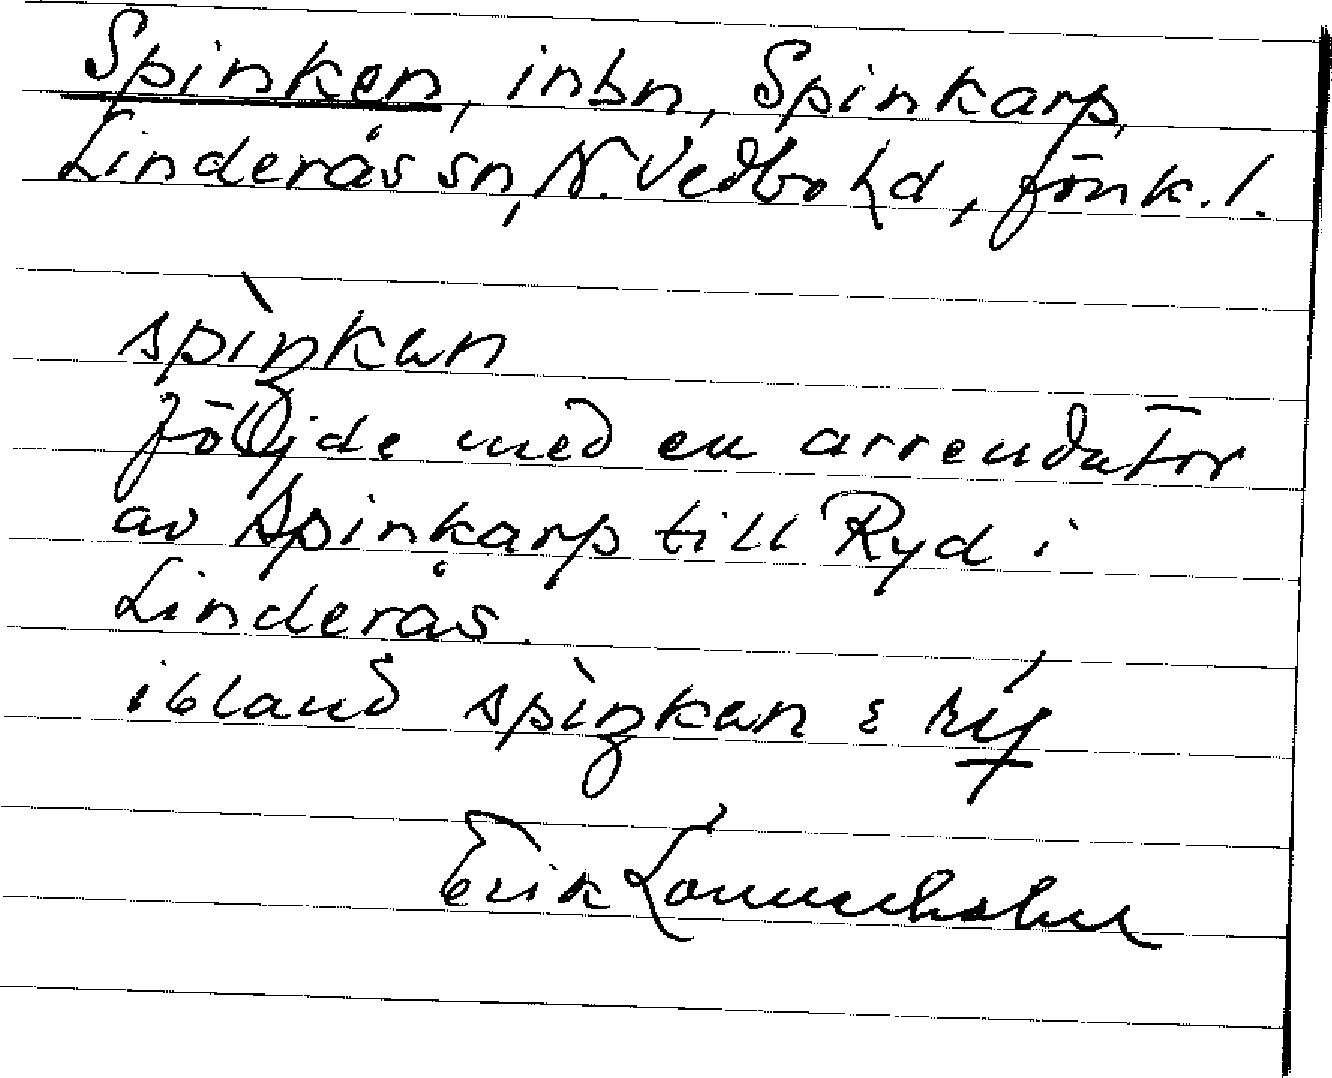 Spinken, inbn, Spinkarp,
Linderås sn, N. Vedbo hd, Jönk. l.
spìŋkan
följde med en arrendator
av Spinkarp till Ryd i
Linderås.
ibland spìŋkan i rý
Erik